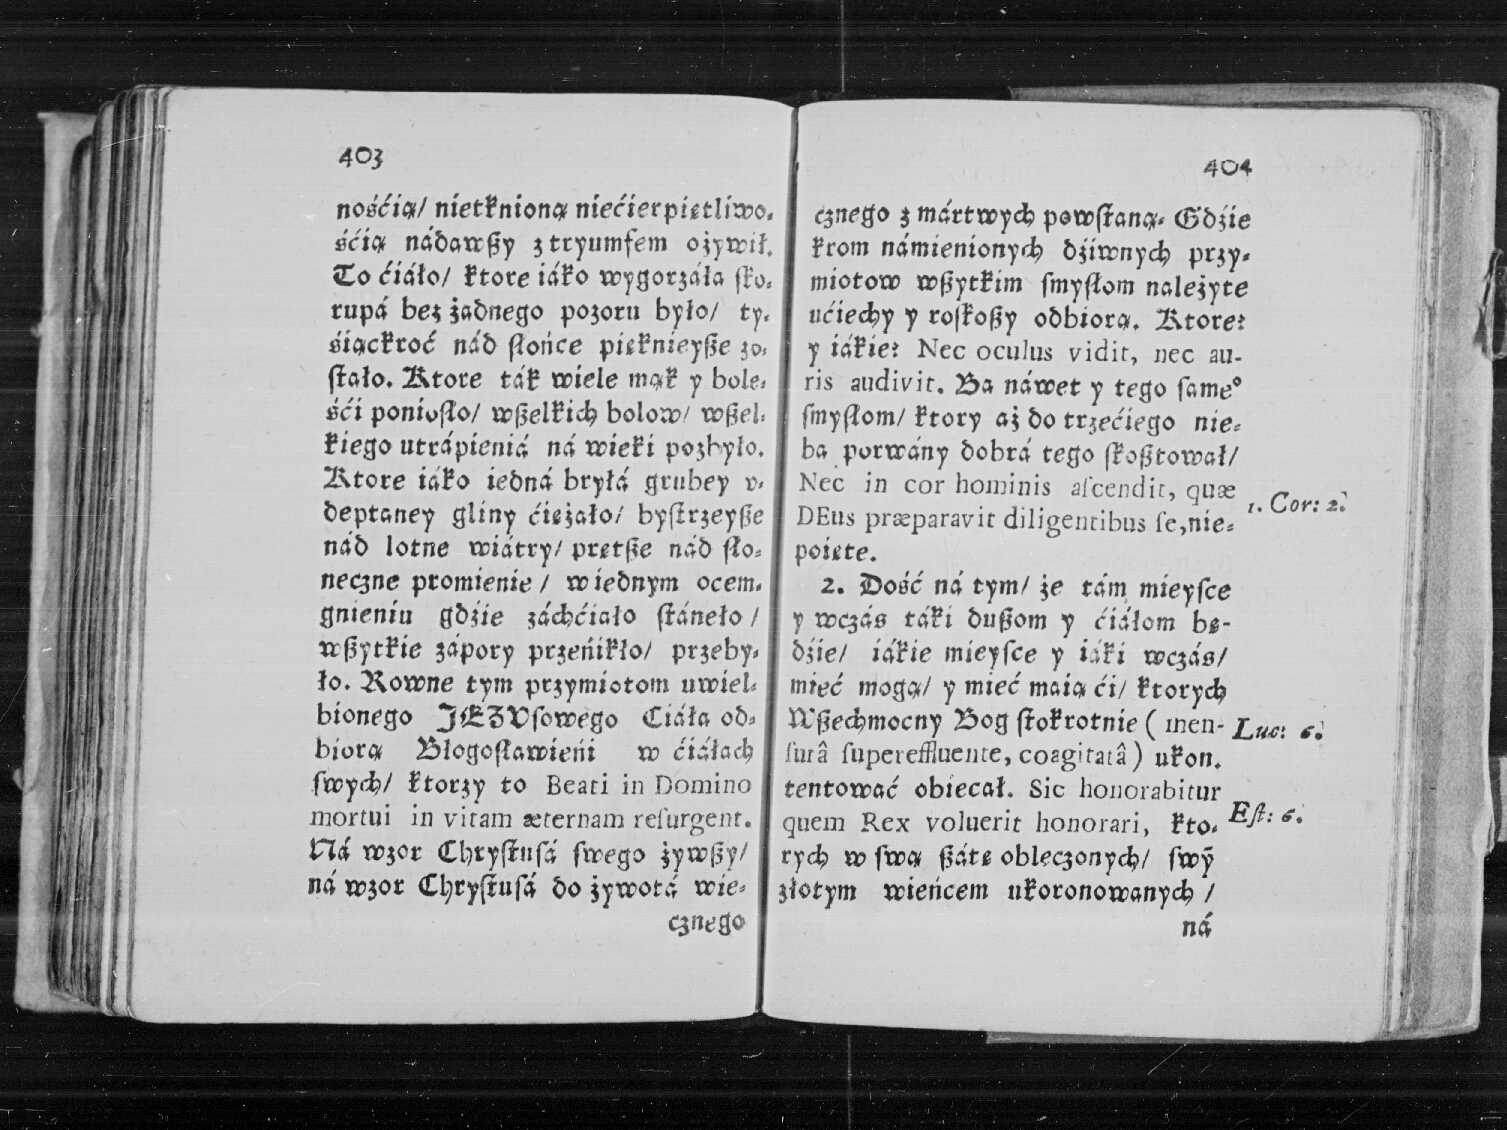 403
nośćią/ nietknioną niećierpiętliwo-
śćią nádawßy z tryumfem ożywił.
To ćiáło/ ktore iáko wygorzáła sko-
rupá bez żadnego pozoru było/ ty-
śiąckroć nád słońce pięknieyße zo-
stało. Ktore ták wiele mąk y bole-
śći poniosło/ wßelkich bolow/ wßel-
kiego utrápieniá ná wieki pozbyło.
Ktore iáko iedná bryłá grubey v-
deptaney gliny ćiężało/ bystrzeyße
nád lotne wiátry/ prętße nád sło-
neczne promienie/ w iednym ocem-
gnieniu gdźie záchćiało stáneło/
wßytkie zápory przeńikło/ przeby-
ło. Rowne tym przymiotom uwiel-
bionego JEZVsowego Ciáła od-
biorą Błogosławieńi w ćiáłach
swych/ ktorzy to Beati in Domino
mortui in vitam æternam reſurgent.
Ná wzor Chrystusá swego żywßy/
ná wzor Chrystusá do żywotá wie-
cznego
404
cznego z mártwych powstaną. Gdźie
krom námienionych dźiwnych przy-
miotow wßytkim smysłom należyte
ućiechy y roskoßy odbiorą. Ktore?
y iákie? Nec oculus vidit, nec au-
ris audivit. Ba náwet y tego same°
smysłom/ ktory aż do trzećiego nie-
ba porwány dobrá tego skoßtował/
Nec in cor hominis aſcendit, quæ
DEus præparavit diligentibus ſe, nie-
poięte.
1. Cor: 2.
2. Dość ná tym/ że tám mieysce
y wczás táki dußom y ćiáłom bę-
dźie/ iákie mieysce y iáki wczás/
mieć mogą/ y mieć maią ći/ ktorych
Wßechmocny Bog stokrotnie (men-
ſurâ ſupereffluente, coagitatâ) ukon-
Luc: 6.
tentować obiecał. Sic honorabitur
quem Rex voluerit honorari, kto-
Eſt: 6.
rych w swą ßátę obleczonych/ swȳ
złotym wieńcem ukoronowanych/
ná